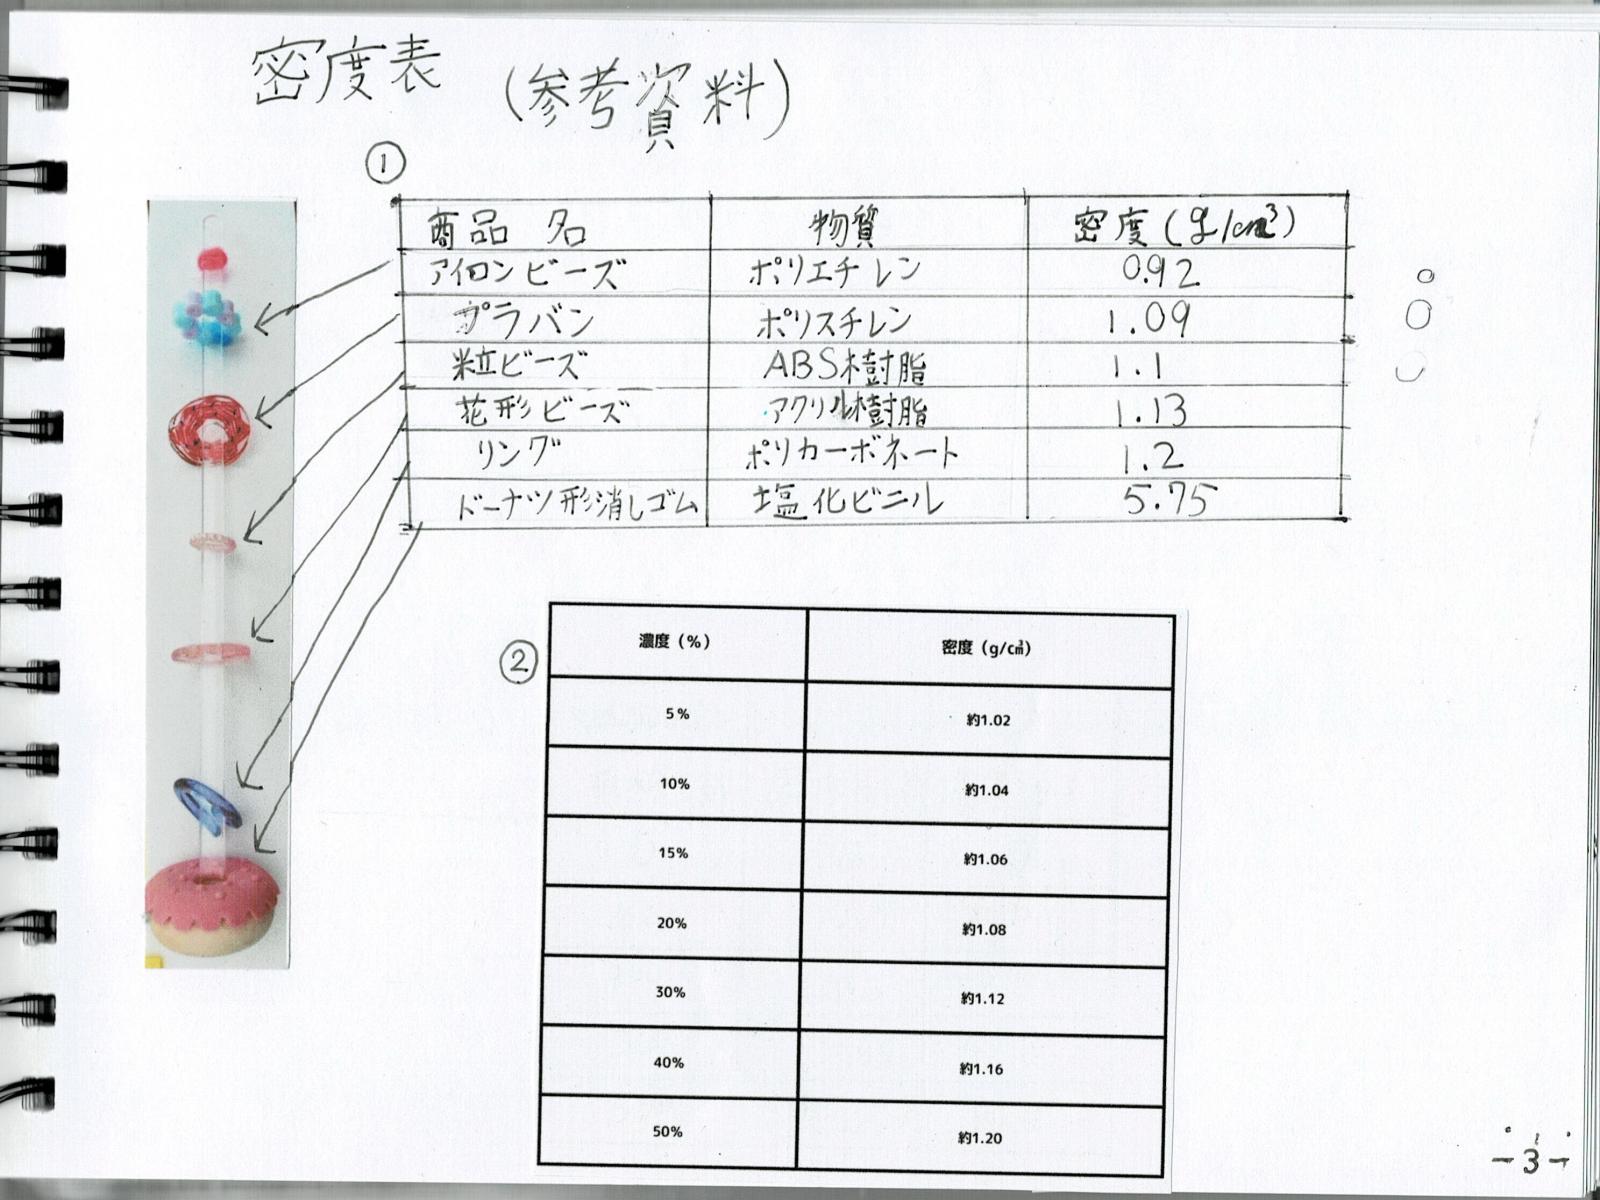 密度表 (参考資料)
①
商品名 物質 密度(g/cm³)
アイロンビーズ ポリエチレン 0.92
プラバン ポリスチレン 1.09
粒ビーズ ABS樹脂 1.1
花形ビーズ アクリル樹脂 1.13
リング ポリカーボネート 1.2
ドーナツ形消しゴム 塩化ビニル 5.75
②
濃度(%) 密度(g/c㎥)
5% 約1.02
10% 約1.04
15% 約1.06
20% 約1.08
30% 約1.12
40% 約1.16
50% 約1.20
-3-